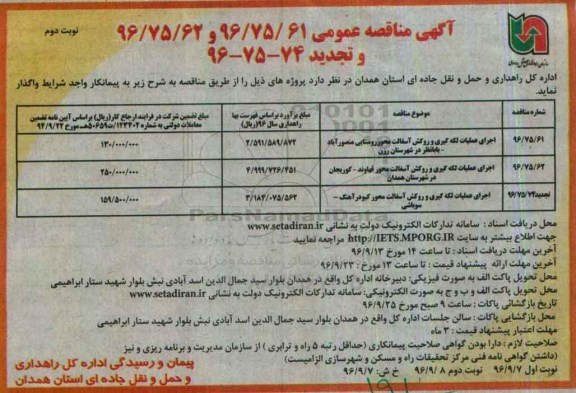 آگهی مناقصه عمومی ۹۶/۷۵/۶۱ و ۹۶/۷۵/۶۲
و تجدید ۷۴-۷۵-۹۶
نوبت دوم
اداره کل راهداری و حمل و نقل جاده ای استان همدان در نظر دارد پروژه های ذیل را از طریق مناقصه به شرح زیر به پیمانکار واجد شرایط واگذار
نماید.
شماره مناقصه
موضوع مناقصه
مبلغ برآورد براساس فهرست بها راهداری سال ۹۶(ریال)
مبلغ تضمین شرکت در فرایند ارجاع کار(ریال) براساس آیین نامه تضمین معاملات دولتی به شماره ۱۲۳۴۰۲/ت۵۰۶۵۹هـ مورخ ۹۴/۹/۲۲
۹۶/۷۵/۶۱
اجرای عملیات لکه گیری و روکش آسفالت محورروستایی منصورآباد - بابانظر در شهرستان رزن
۲/۵۹۱/۵۸۹/۸۷۲
۱۳۰/۰۰۰/۰۰۰
۹۶/۷۵/۶۲
اجرای عملیات لکه گیری و روکش آسفالت محور نهاوند - کوریجان در شهرستان همدان
۴/۹۹۹/۷۲۶/۴۵۱
۲۵۰/۰۰۰/۰۰۰
تجدید۹۶/۷۵/۷۴
اجرای عملیات لکه گیری و روکش آسفالت محور کبودرآهنگ - سوباشی
۳/۱۸۴/۰۷۵/۵۶۲
۱۵۹/۵۰۰/۰۰۰
محل دریافت اسناد : سامانه تدارکات الکترونیک دولت به نشانی www.setadiran.ir
جهت اطلاع بیشتر به سایت http://IETS.MPORG.IR مراجعه نمایید
آخرین مهلت دریافت اسناد : تا ساعت ۱۴ مورخ ۹۶/۹/۱۳
آخرین مهلت ارائه پیشنهاد قیمت : تا ساعت ۱۳ مورخ : ۹۶/۹/۲۳
محل تحویل پاکت الف به صورت فیزیکی: دبیرخانه اداره کل واقع در همدان بلوار سید جمال الدین اسد آبادی نبش بلوار شهید ستار ابراهیمی
محل تحویل پاکت الف و ب و ج به صورت الکترونیکی: سامانه تدارکات الکترونیک دولت به نشانی www.setadiran.ir
تاریخ بازگشائی پاکات : ساعت ۹ صبح مورخ ۹۶/۹/۲۵
محل بازگشایی پاکات : سالن جلسات اداره کل واقع در همدان بلوار سید جمال الدین اسد آبادی نبش بلوار شهید ستار ابراهیمی
مهلت اعتبار پیشنهاد قیمت : ۳ ماه
صلاحیت لازم : دارا بودن گواهی صلاحیت پیمانکاری (حداقل رتبه ۵ راه و ترابری ) از سازمان مدیریت و برنامه ریزی و نیز
(داشتن گواهی نامه فنی مرکز تحقیقات راه و مسکن و شهرسازی الزامیست)
نوبت اول ۹۶/۹/۷ نوبت دوم ۹۶/۹/۸ خ ش: ۹۶/۹/۷
پیمان و رسیدگی اداره کل راهداری
و حمل و نقل جاده ای استان همدان
ParsNamadData